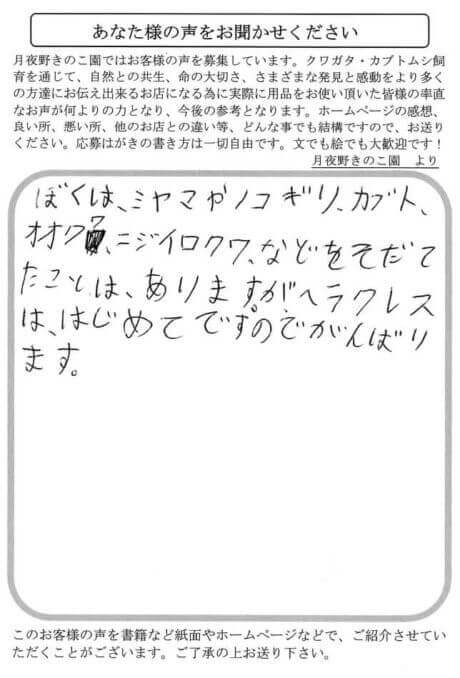 あなた様の声をお聞かせください
月夜野きのこ園ではお客様の声を募集しています。クワガタ・カブトムシ飼
育を通じて、自然との共生、命の大切さ、さまざまな発見と感動をより多く
の方達にお伝え出来るお店になる為に実際に用品をお使い頂いた皆様の率直
なお声が何よりの力となり、今後の参考となります。ホームページの感想、
良い所、悪い所、他のお店との違い等、どんな事でも結構ですので、お送り
ください。応募はがきの書き方は一切自由です。文でも絵でも大歓迎です！
月夜野きのこ園　より
ぼくは、ミヤマやノコギリ、カブト、
オオクワ、ニジイロクワ、などをそだて
たことは、ありますが、ヘラクレス
は、はじめてですのでがんばり
ます。
このお客様の声を書籍など紙面やホームページなどで、ご紹介させてい
ただくことがございます。ご了承の上お送り下さい。